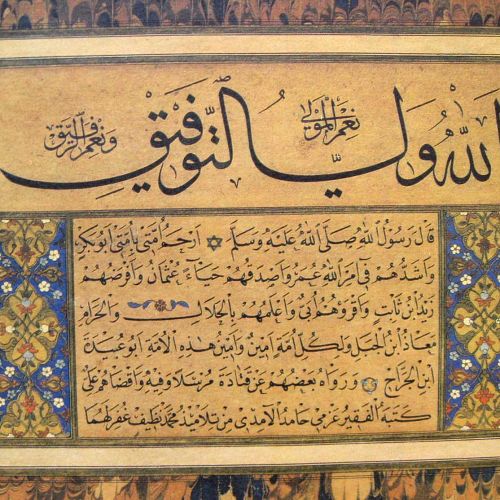 الله ولي التوفيق
نعم المولى
ونعم الرفيق
قال رسول الله صلى الله عليه وسلم ارحم أمتي بأمتي أبو بكر
وأشدهم في أمر الله عمر وأصدقهم حياء عثمان وأفرضهم
زيد بن ثابت وأقرؤهم أبي وأعلمهم بالحلال والحرام
معاذ بن الجبل ولكل أمة أمين وأمين هذه الأمة أبو عبيدة
ابن الجراح ورواه بعضهم عن قتادة مرسلا وفيه وأقضاهم علي
كتبه الفقير عزمي حامد الآمدي من تلاميذ محمد نظيف غفر لهما